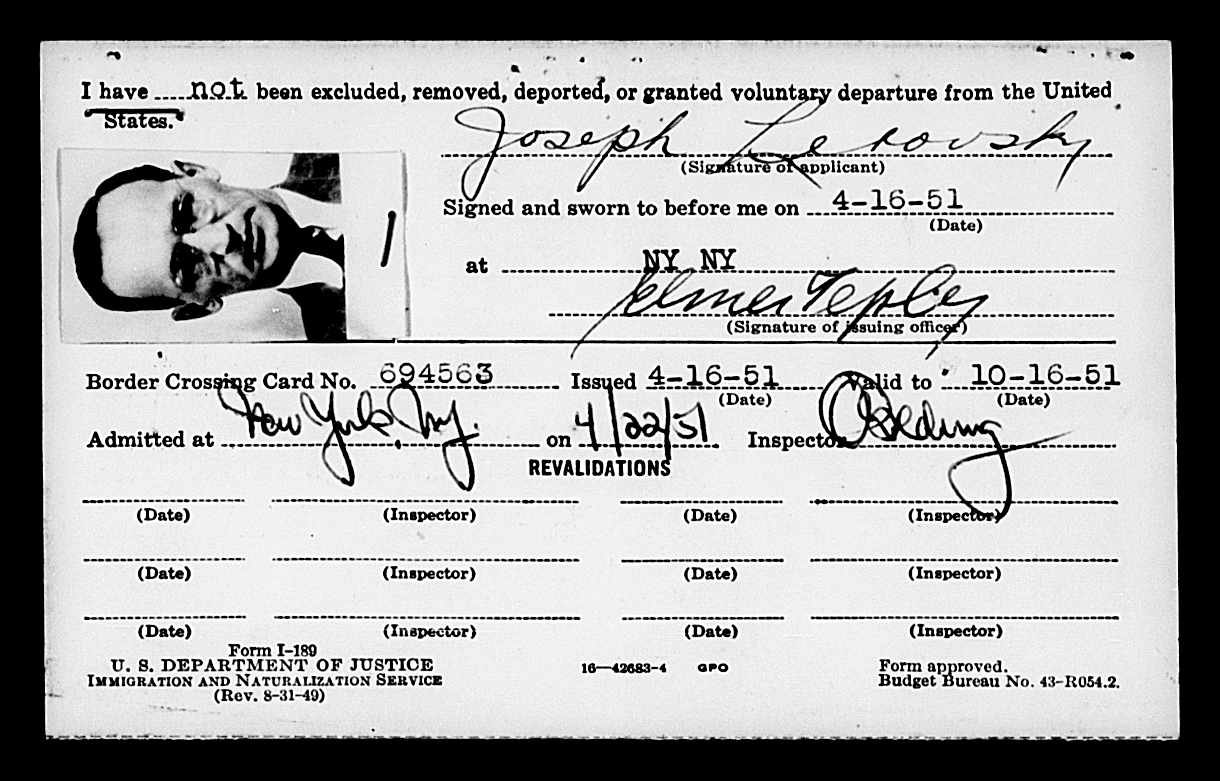 I have not been excluded, removed, deported, or granted voluntary departure from the United
States.
Joseph
(Signature of applicant)
Signed and sworn to before me on 4-16-51
(Date)
at NY NY
Elmer Tepley
(Signature of issuing officer)
Border Crossing Card No. 694563 Issued 4-16-51 Valid to 10-16-51
(Date) (Date)
Admitted at New York, N.Y. on 4/22/51 Inspector
REVALIDATIONS
(Date) (Inspector) (Date) (Inspector)
(Date) (Inspector) (Date) (Inspector)
(Date) (Inspector) (Date) (Inspector)
Form I-189
U. S. DEPARTMENT OF JUSTICE
IMMIGRATION AND NATURALIZATION SERVICE
(Rev. 8-31-49)
16—42683-4 GPO
Form approved.
Budget Bureau No. 43-R054.2.